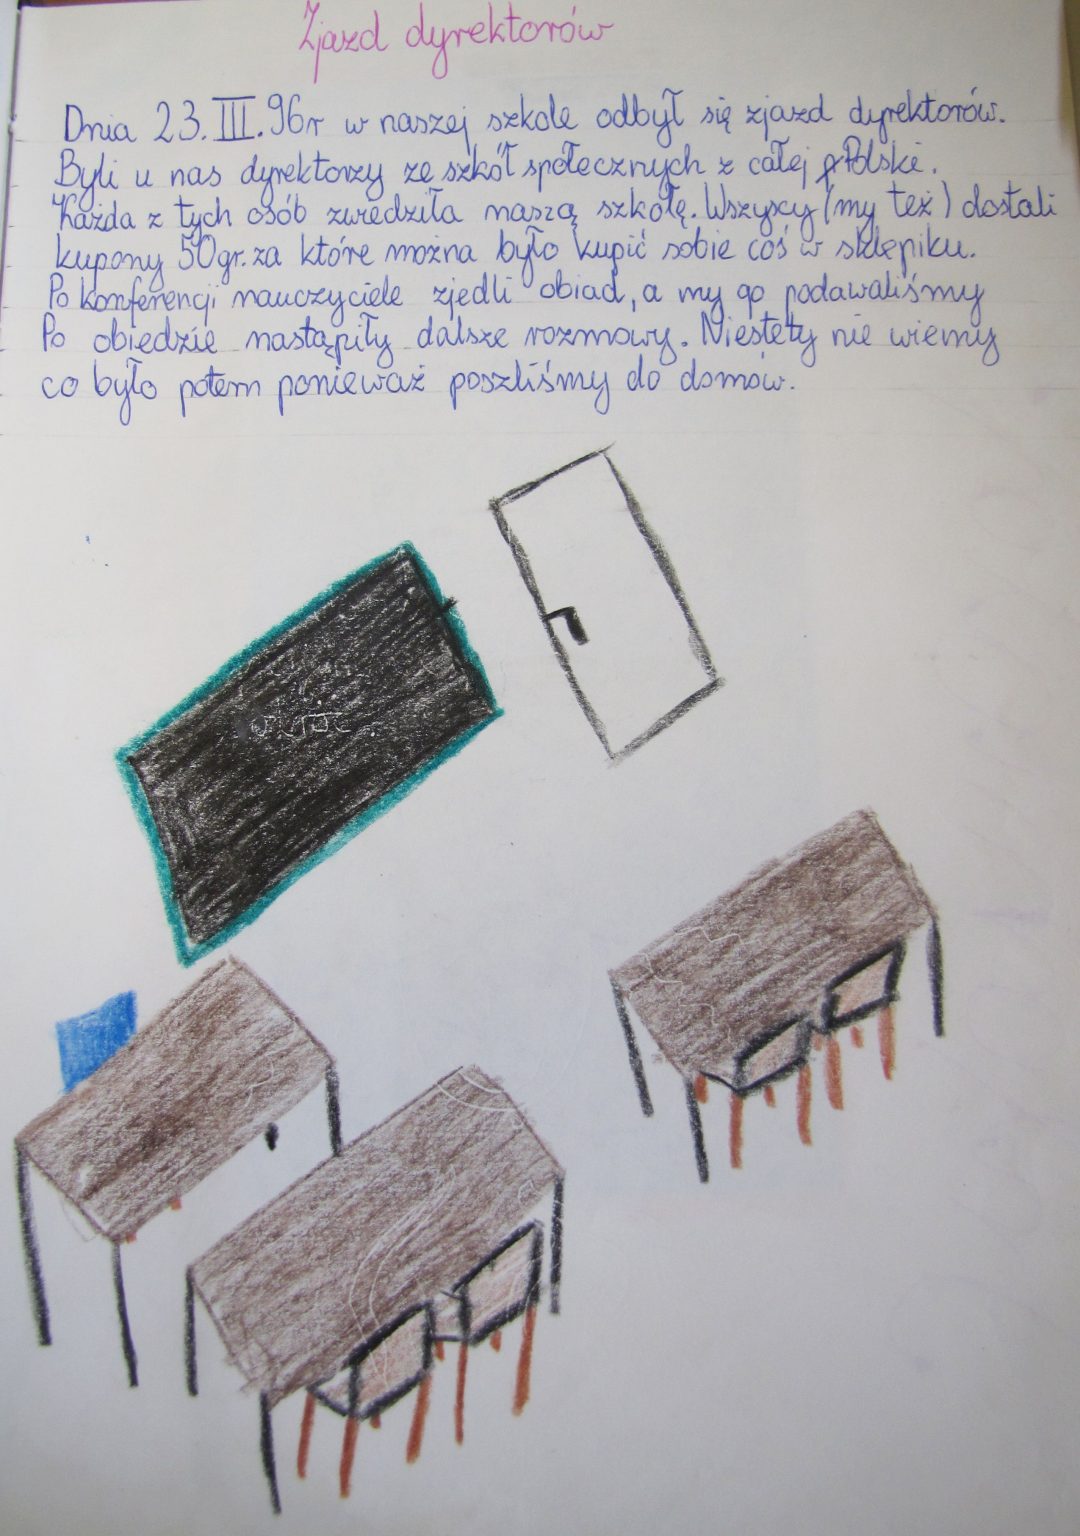 Zjazd dyrektorów
Dnia 23.III.96r w naszej szkole odbył się zjazd dyrektorów.
Byli u nas dyrektorzy ze szkół społecznych z całej Polski.
Każda z tych osób zwiedziła naszą szkołę. Wszyscy (my też) dostali
kupony 50gr. za które można było kupić sobie coś w sklepiku.
Po konferencji nauczyciele zjedli obiad, a my go podawaliśmy
Po obiedzie nastąpiły dalsze rozmowy. Niestety nie wiemy
co było potem ponieważ poszliśmy do domów.